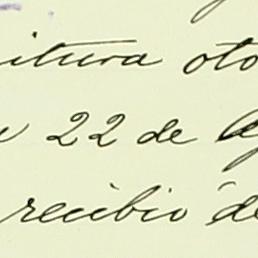 itura oto
22 de
recibio de